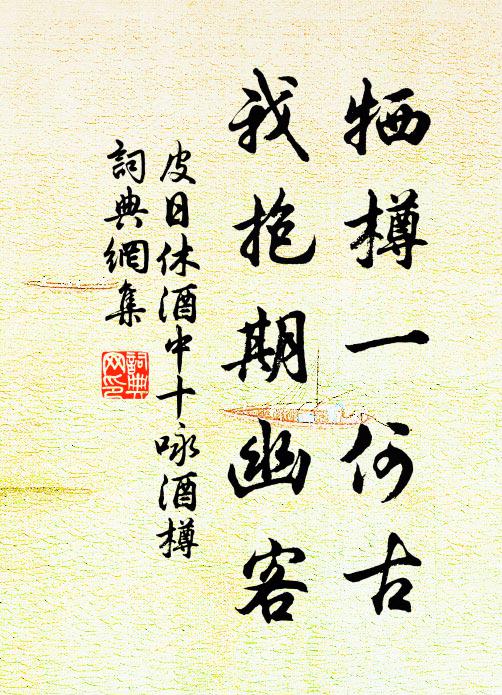 牺樽一何古
我抱期幽客
皮日休酒中十咏酒樽
詞典網集
詞典
网印